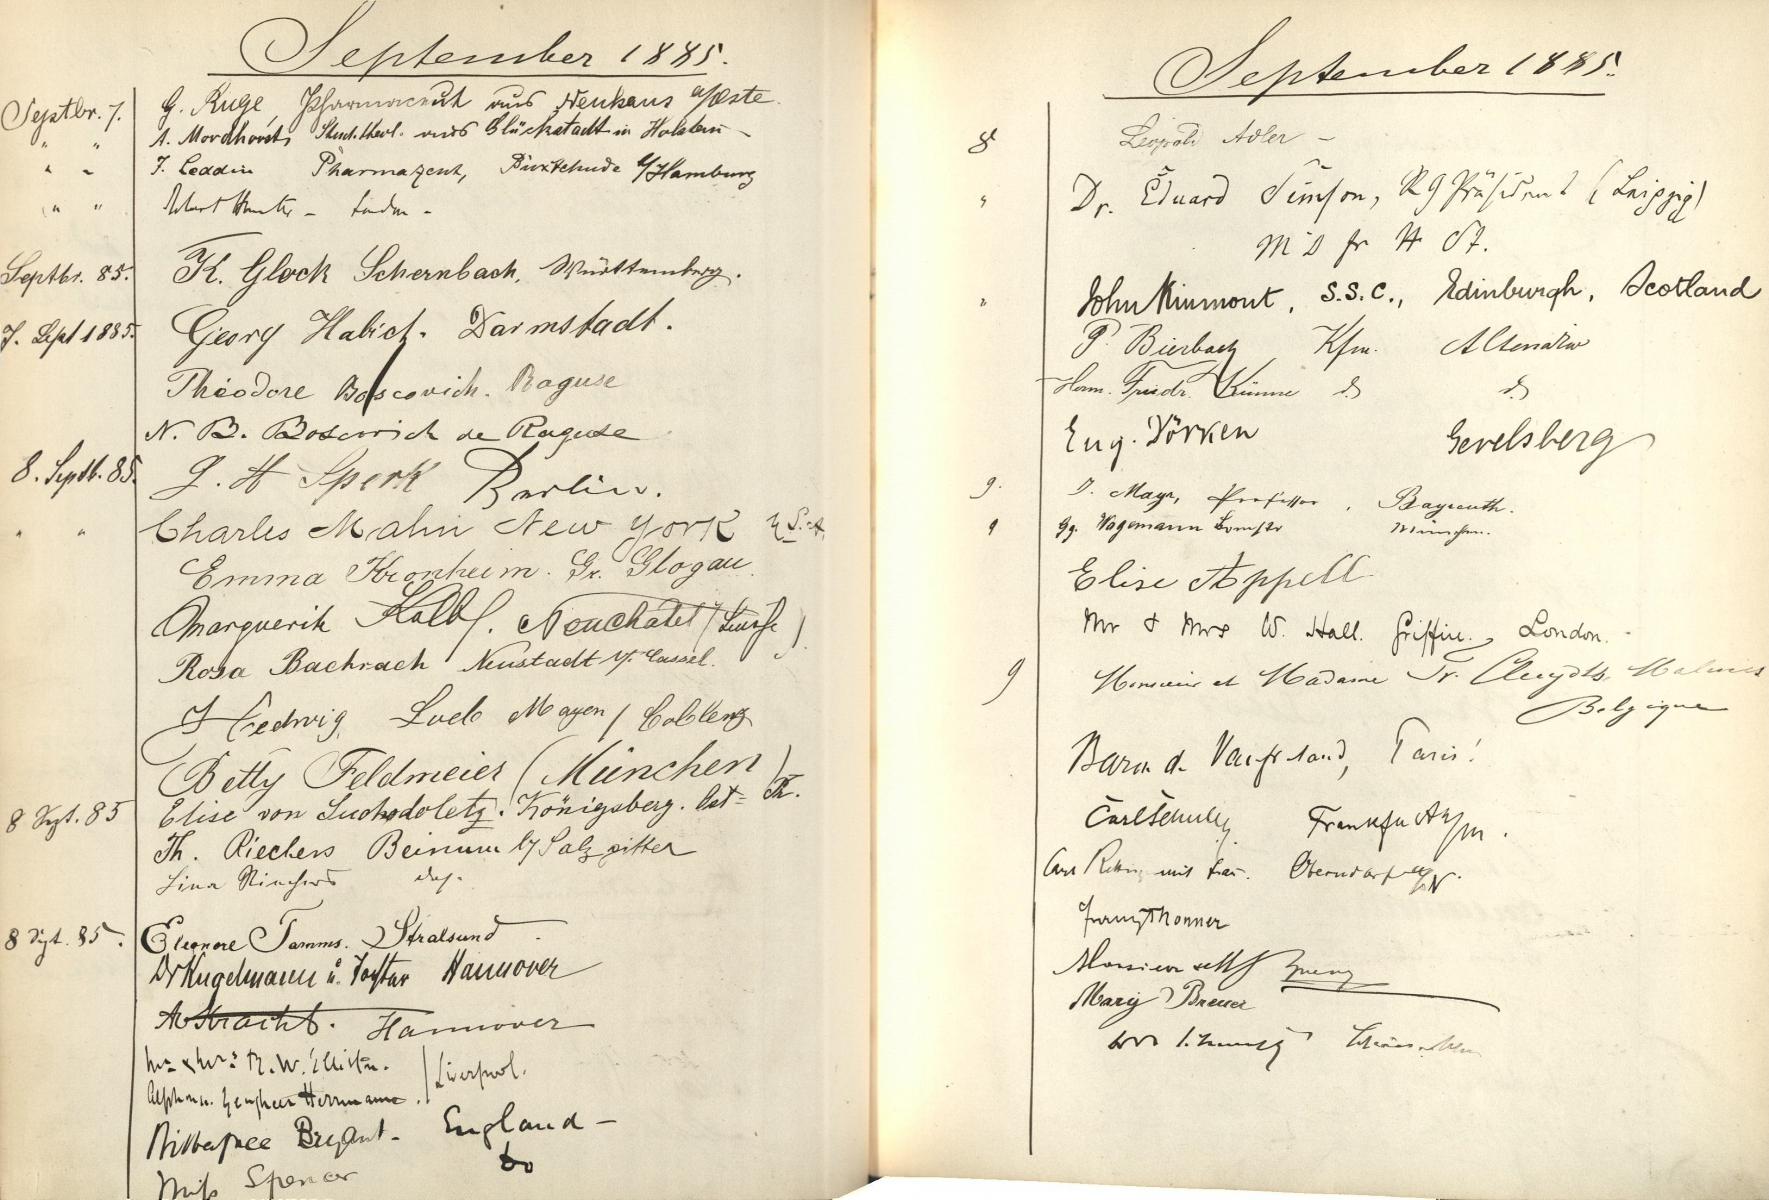 September 1885.
Septbr. 7. G. Ruge Pharmaceut aus Neuhaus a/Oste.
" " A. Mordhorst, Stud. theol. aus Glückstadt in Holstein –
" " F. Leddin Pharmazeut, Buxtehude b/Hamburg
" " Hunter – London –
Septbr. 85. K. Glock Schernbach, Württemberg.
7. Sept 1885. Georg Habich. Darmstadt.
Théodore Boscovich. Raguse
N. B. Boscovich de Raguse
8. Septb. 85. J. H Spork Berlin.
" " Charles Mahn New York U.S.A.
Emma Kronheim. Gr. Glogau.
Marguerite Kolb. Neuchatel (Suisse).
Rosa Bachrach Neustadt b/Cassel.
Hedwig Loeb Mayen / Coblenz
Betty Feldmeier (München)
8 Sept. 85 Elise von Suchodoletz. Königsberg. Ost=Pr.
Th. Riechers Beinum b/Salzgitter
Lina Riechers das.
8 Sept. 85. Eleonore Tamms. Stralsund.
Dr Kugelmann u. Tochter Hannover
A. Hannover
R. W. Liverpool.
Herrmann.
Bryant – England –
Miss Spencer do
September 1885.
8 Leopold Adler –
" Dr. Eduard Simson, RGPräsident (Leipzig)
" John Kinmont, S.S.C., Edinburgh, Scotland
P. Bierbach Kfm. Altena
Herm. Friedr. Künne d. d.
Eug. Dörken Gevelsberg
9. D. Mayr, Professor, Bayreuth.
9 Gg. Wagemann München.
Elise Appell
Mr & Mrs W. Hall. Griffin., London.
9 Monsieur et Madame Fr. Cluydts, Malines
Belgique
Baron de Paris!
Carl Schulz Frankfurt a/m.
Carl mit Frau. Oberndorf a/N.
Franz Thonner
Monsieur
Mary Brewer